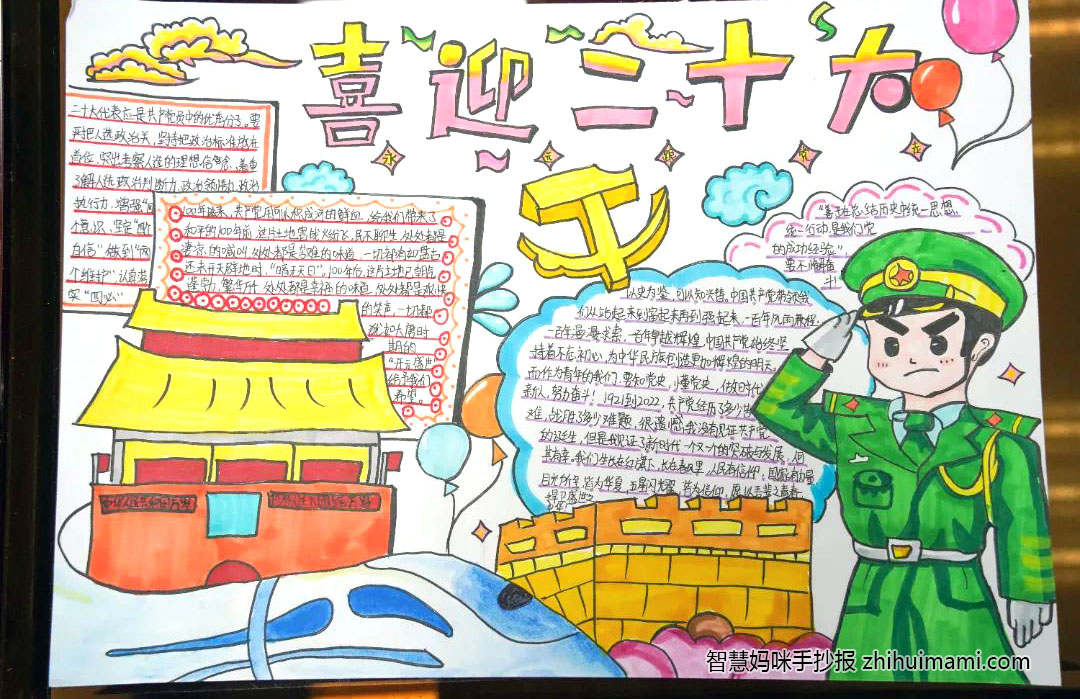 喜迎二十大
永远跟党走
二十大代表应是共产党员中的优秀分子。要
再把人选政治关，坚持把政治标准放在
首位，突出考察人选的理想信念，着重
了解人选政治判断力、政治领悟力、政治
执行力，增强"四
个意识、坚定"四个
自信"做到"两
个维护"认真落
实"四必"
100年越来，共产党用
给我们带来了
和平的100年前，这片土地
民不聊生，处处都是
凄凉的
处处都是
的味道，一切
还未开天辟地时，
100年后，这片土地已
处处都是幸福的味道，处处都是
的笑声，一切都
难如大唐时
期的
"开元盛世"
给予我们
希望。
统一思想
统一行动是我们党
的成功经验。"
要不懈奋
斗！
以史为鉴，可以知兴替。中国共产党带领我
们从站起来到富起来再到强起来，一百年风雨兼程，
一百年
求索，百年
辉煌，中国共产党始终坚
持着不忘初心，为中华民族创造更加辉煌的明天。
而作为青年的我们，要知党史，懂党史，做好时代
新人，努力奋斗！1921到2022，共产党经历了多少苦
难，战胜了多少难题，很遗憾，我没有见证共产党
的诞生，但是我见证了新时代一个又一个的突破与发展，何
其有幸。我们生长在红旗下，长在春风里，人民有信仰，国家有力量
目光所至，皆为华夏，五星闪耀，皆为信仰，愿以吾辈之青春
捍卫盛世之
中华人民共和国万岁
世界人民大团结万岁
智慧妈咪手抄报 zhihuimami.com